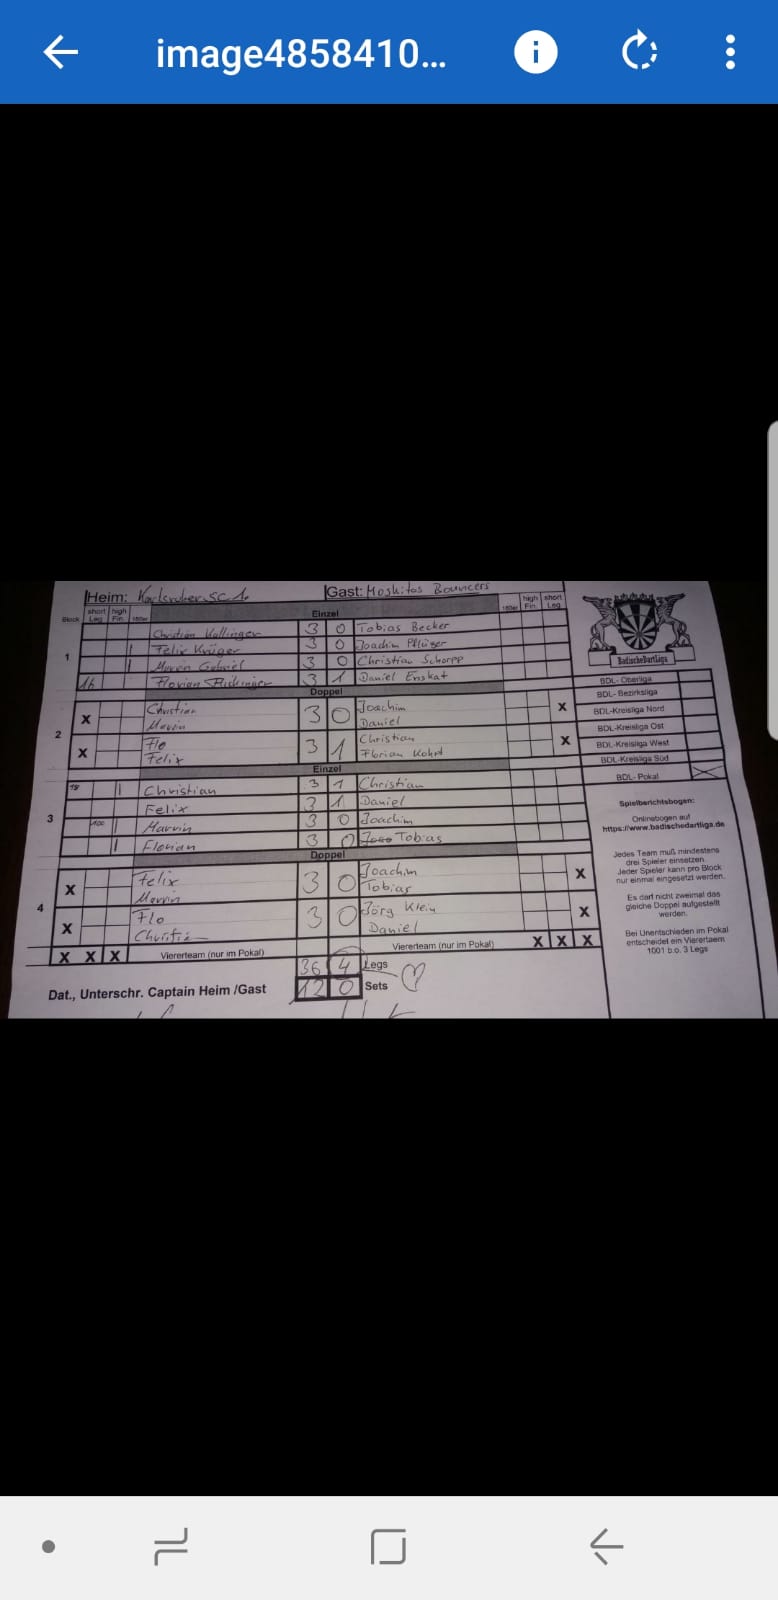 image4858410...
Heim: Karlsruher SC 1. Gast: Moskitos Bouncers
Block short Leg high Fin. 180er Einzel 180er high Fin. short Leg
1
Christian Kallinger 3 0 Tobias Becker
Felix Krüger 3 0 Joachim Pflüger
Marvin Gabriel 3 0 Christian Schorpp
16 Florian 3 1 Daniel Enskat
Doppel
2
X Christian Marvin 3 0 Joachim Daniel X
X Flo Felix 3 1 Christian Florian X
Einzel
3
18 | Christian 3 1 Christian
Felix 3 1 Daniel
100 | Marvin 3 0 Joachim
| Florian 3 0 Tobias
Doppel
4
X Felix Marvin 3 0 Joachim Tobias X
X Flo Christian 3 0 Jörg Klein Daniel X
X X X Viererteam (nur im Pokal) Viererteam (nur im Pokal) X X X
36 4 Legs
Dat., Unterschr. Captain Heim /Gast 12 0 Sets
BadischeDartLiga
BDL- Oberliga
BDL- Bezirksliga
BDL-Kreisliga Nord
BDL-Kreisliga Ost
BDL-Kreisliga West
BDL-Kreisliga Süd
BDL- Pokal
Spielberichtsbogen:
Onlinebogen auf
https://www.badischedartliga.de
Jedes Team muß mindestens
drei Spieler einsetzen.
Jeder Spieler kann pro Block
nur einmal eingesetzt werden.
Es darf nicht zweimal das
gleiche Doppel aufgestellt
werden.
Bei Unentschieden im Pokal
entscheidet ein Viererteam
1001 b.o. 3 Legs